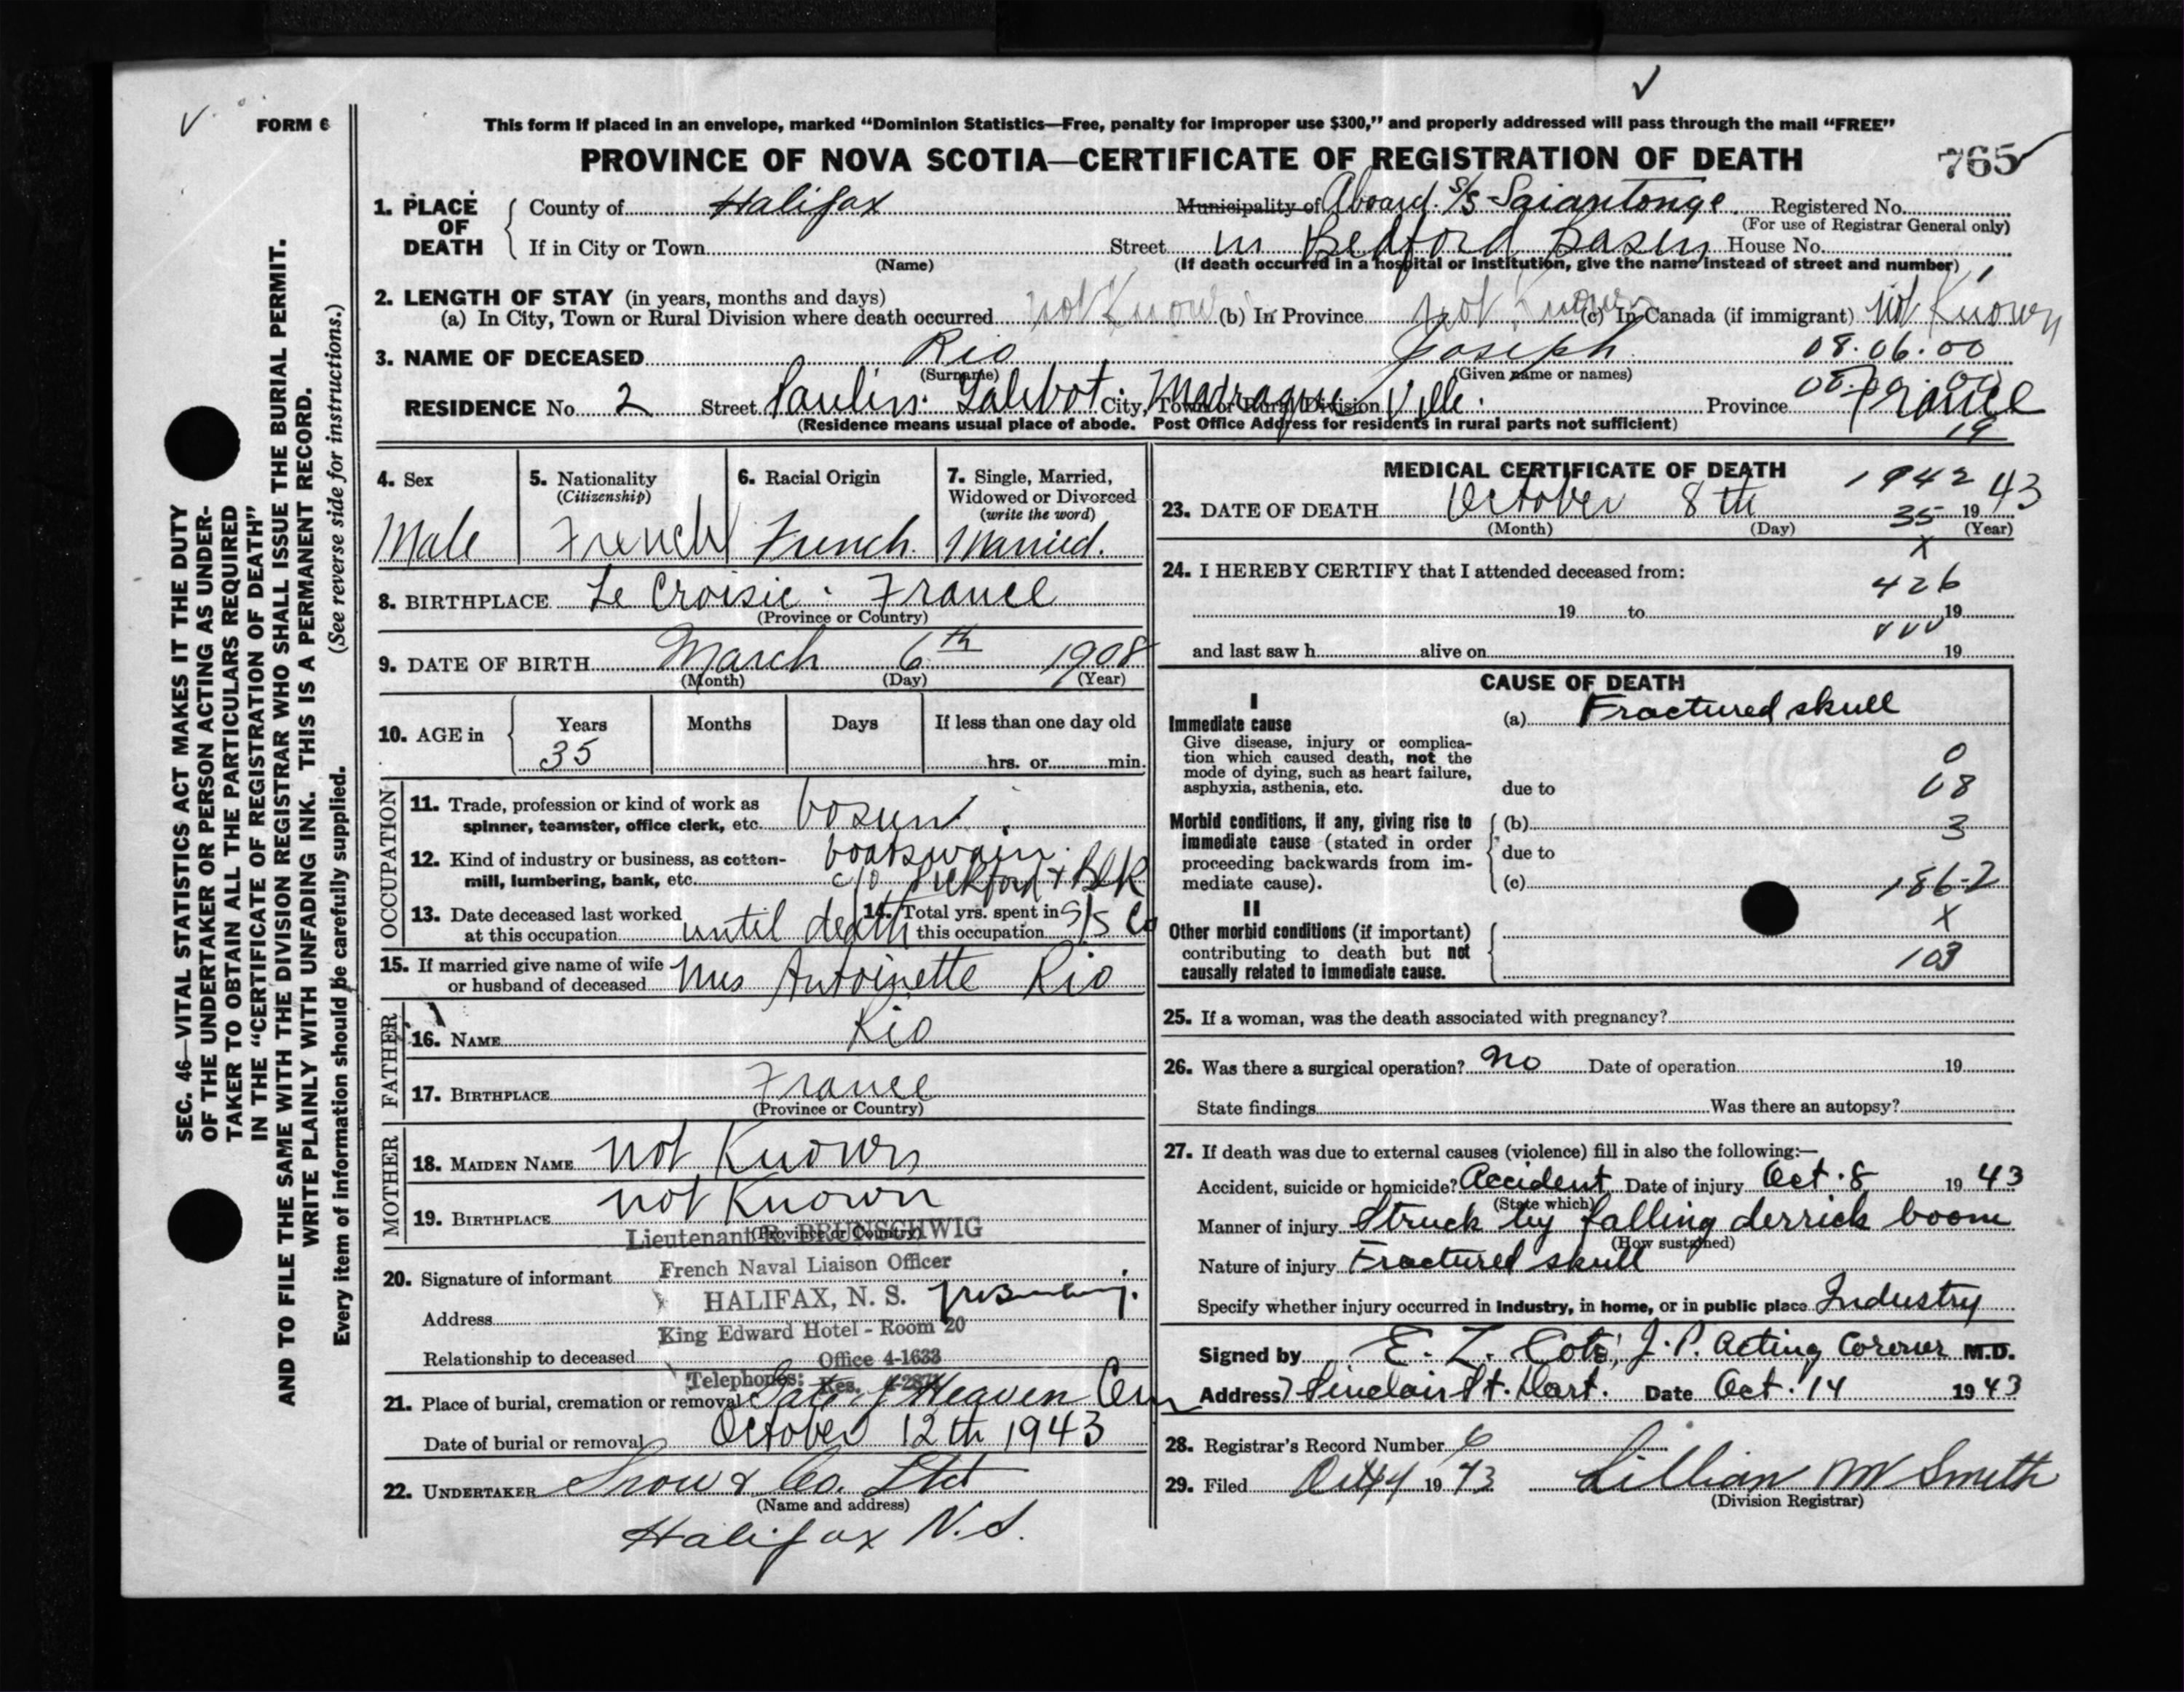 FORM 6
This form if placed in an envelope, marked “Dominion Statistics—Free, penalty for improper use $300,” and properly addressed will pass through the mail “FREE”
PROVINCE OF NOVA SCOTIA—CERTIFICATE OF REGISTRATION OF DEATH
765
1. PLACE OF DEATH
County of Halifax Municipality of Aboard S/S Saiantonge Registered No.
(For use of Registrar General only)
If in City or Town Street in Bedford Basin House No.
(Name) (If death occurred in a hospital or institution, give the name instead of street and number)
2. LENGTH OF STAY (in years, months and days)
(a) In City, Town or Rural Division where death occurred not Known (b) In Province not Known (c) In Canada (if immigrant) not Known
3. NAME OF DECEASED Rio Joseph 08.06.00
(Surname) (Given name or names)
RESIDENCE No. 2 Street Paulin Talibot City, Town or Rural Division Madrague Ville Province France
(Residence means usual place of abode. Post Office Address for residents in rural parts not sufficient)
19
4. Sex
Male
5. Nationality
(Citizenship)
French
6. Racial Origin
French.
7. Single, Married,
Widowed or Divorced
(write the word)
Married.
8. BIRTHPLACE Le Croisic. France
(Province or Country)
9. DATE OF BIRTH March 6th 1908
(Month) (Day) (Year)
10. AGE in Years Months Days If less than one day old
35 hrs. or min.
OCCUPATION
11. Trade, profession or kind of work as
spinner, teamster, office clerk, etc. bosun.
12. Kind of industry or business, as cotton- boatswain.
mill, lumbering, bank, etc. c/o Pickford & Blk
13. Date deceased last worked
at this occupation until death
14. Total yrs. spent in
this occupation S/S Co
15. If married give name of wife
or husband of deceased Mrs Antoinette Rio
FATHER
16. NAME Rio
17. BIRTHPLACE France
(Province or Country)
MOTHER
18. MAIDEN NAME not Known
19. BIRTHPLACE not Known
(Province or Country)
Lieutenant R. BRUNSCHWIG
French Naval Liaison Officer
20. Signature of informant
HALIFAX, N. S.
Address
King Edward Hotel - Room 20
Relationship to deceased
Office 4-1633
Telephones: Res.
21. Place of burial, cremation or removal Gate of Heaven Cem
Date of burial or removal October 12th 1943
22. UNDERTAKER Snow & Co. Ltd
(Name and address)
Halifax N.S.
MEDICAL CERTIFICATE OF DEATH
1942
23. DATE OF DEATH October 8th 1943
(Month) (Day) (Year)
35
x
24. I HEREBY CERTIFY that I attended deceased from:
426
19 to 19
and last saw h alive on 19
CAUSE OF DEATH
I
Immediate cause (a) Fractured skull
Give disease, injury or complica-
tion which caused death, not the
mode of dying, such as heart failure,
asphyxia, asthenia, etc. due to
0
08
Morbid conditions, if any, giving rise to (b) 3
immediate cause (stated in order due to
proceeding backwards from im-
mediate cause). (c) 186-2
II x
Other morbid conditions (if important)
contributing to death but not
causally related to immediate cause. 103
25. If a woman, was the death associated with pregnancy?
26. Was there a surgical operation? No Date of operation 19
State findings Was there an autopsy?
27. If death was due to external causes (violence) fill in also the following:—
Accident, suicide or homicide? Accident Date of injury Oct. 8 1943
(State which)
Manner of injury Struck by falling derrick boom
(How sustained)
Nature of injury Fractured skull
Specify whether injury occurred in industry, in home, or in public place Industry
Signed by E. Z. Coté, J.P. Acting Coroner M.D.
Address 7 Sinclair St. Dart. Date Oct. 14 1943
28. Registrar's Record Number 6
29. Filed Oct 14 1943 Lillian M Smith
(Division Registrar)
SEC. 46—VITAL STATISTICS ACT MAKES IT THE DUTY
OF THE UNDERTAKER OR PERSON ACTING AS UNDER-
TAKER TO OBTAIN ALL THE PARTICULARS REQUIRED
IN THE “CERTIFICATE OF REGISTRATION OF DEATH”
AND TO FILE THE SAME WITH THE DIVISION REGISTRAR WHO SHALL ISSUE THE BURIAL PERMIT.
WRITE PLAINLY WITH UNFADING INK. THIS IS A PERMANENT RECORD.
Every item of information should be carefully supplied. (See reverse side for instructions.)